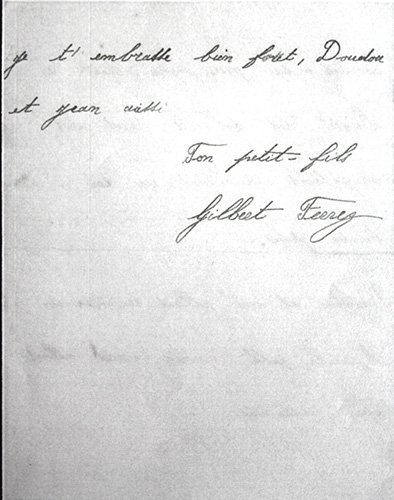 je t'embrasse bien fort, Doudou
et jean aussi
Ton petit-fils
Gilbert